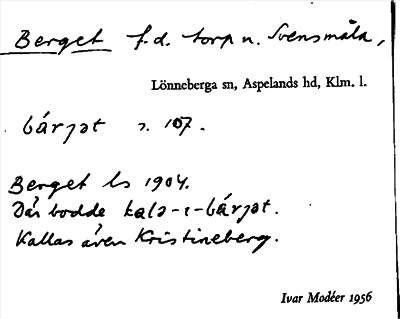 Berget f.d. torp n. Svensmåla,
Lönneberga sn, Aspelands hd, Klm. l.
bárjət s. 107.
Berget ls 1904.
Där bodde kalə-ɩ-bárjət.
Kallas även Kristineberg.
Ivar Modéer 1956